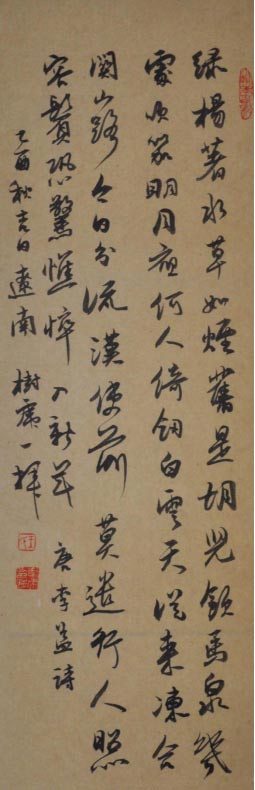 綠楊著水草如煙舊是胡兒飲馬泉幾
處吹笳明月夜何人倚劍白雲天從來凍合
關山路今日分流漢使前莫遣行人照
容鬢恐驚憔悴入新年 唐李益詩
乙酉秋吉日遼南樹一揮